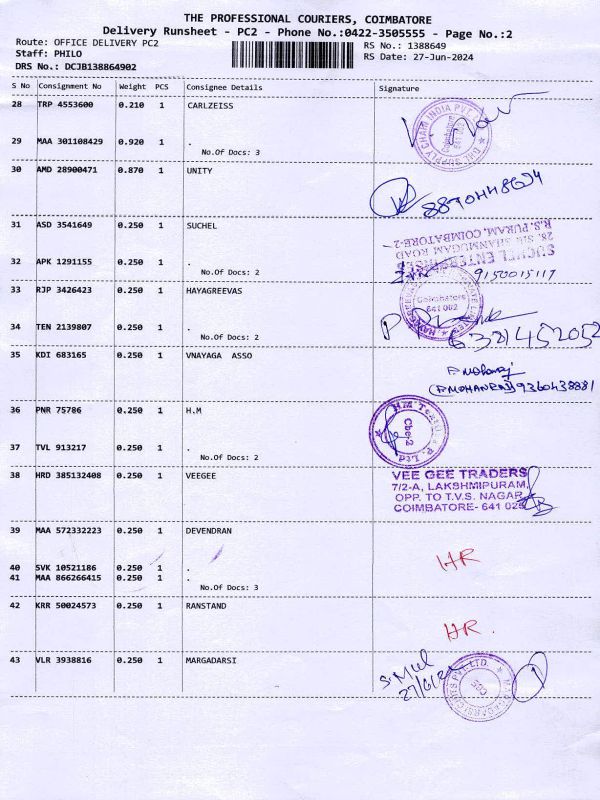 THE PROFESSIONAL COURIERS, COIMBATORE
Delivery Runsheet - PC2 - Phone No.:0422-3505555 - Page No.:2
Route: OFFICE DELIVERY PC2
RS No.: 1388649
Staff: PHILO
RS Date: 27-Jun-2024
DRS No.: DCJB138864902
S No Consignment No Weight PCS Consignee Details Signature
28 TRP 4553600 0.210 1 CARLZEISS
29 MAA 301108429 0.920 1 .
No.Of Docs: 3
30 AMD 28900471 0.870 1 UNITY
31 ASD 3541649 0.250 1 SUCHEL
SUCHEL ENTERPRISES
28, SIR SHANMUGAM ROAD
R.S. PURAM, COIMBATORE-2
32 APK 1291155 0.250 1 .
9150015117
No.Of Docs: 2
33 RJP 3426423 0.250 1 HAYAGREEVAS
Coimbatore
641 002
34 TEN 2139807 0.250 1 .
6381452052
No.Of Docs: 2
35 KDI 683165 0.250 1 VNAYAGA ASSO
P. Mohanraj
(P.MOHANRAJ) 9360438881
36 PNR 75786 0.250 1 H.M
Cbe-2
37 TVL 913217 0.250 1 .
No.Of Docs: 2
38 HRD 385132408 0.250 1 VEEGEE
VEE GEE TRADERS
7/2-A, LAKSHMIPURAM,
OPP. TO T.V.S. NAGAR,
COIMBATORE- 641 025
39 MAA 572332223 0.250 1 DEVENDRAN
HR
40 SVK 10521186 0.250 1 .
41 MAA 866266415 0.250 1 .
No.Of Docs: 3
42 KRR 50024573 0.250 1 RANSTAND
HR.
43 VLR 3938816 0.250 1 MARGADARSI